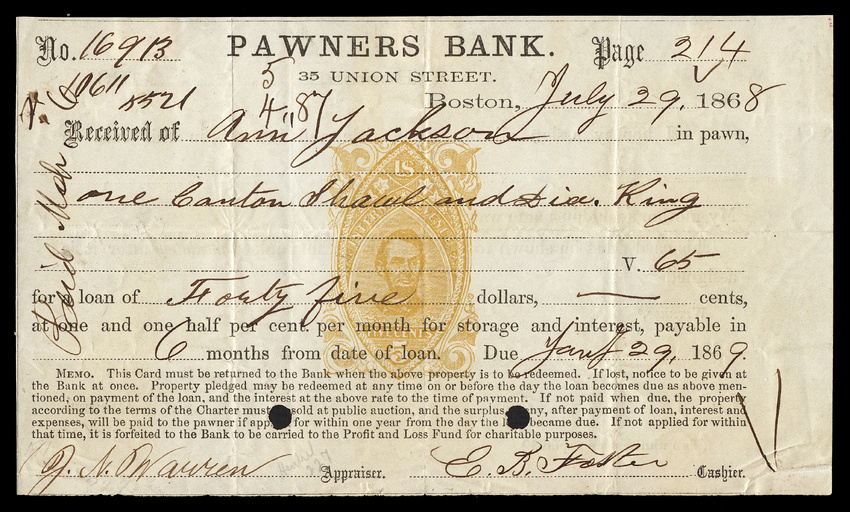 No. 16913 PAWNERS BANK. Page 214
35 UNION STREET.
10611 5521 5 4.87 Boston, July 29, 1868
Received of Ann Jackson in pawn,
one Canton Shawl and Dia. Ring
V. 65
for a loan of Forty five dollars, — cents,
at one and one half per cent per month for storage and interest, payable in
6 months from date of loan. Due Jany 29, 1869.
MEMO. This Card must be returned to the Bank when the above property is to be redeemed. If lost, notice to be given at
the Bank at once. Property pledged may be redeemed at any time on or before the day the loan becomes due as above men-
tioned, on payment of the loan, and the interest at the above rate to the time of payment. If not paid when due, the property
according to the terms of the Charter must sold at public auction, and the surplus, any, after payment of loan, interest and
expenses, will be paid to the pawner if applied for within one year from the day the became due. If not applied for within
that time, it is forfeited to the Bank to be carried to the Profit and Loss Fund for charitable purposes.
Warren Appraiser. E. B. Foster Cashier.
Paid
U.S.
FIVE CENTS
5